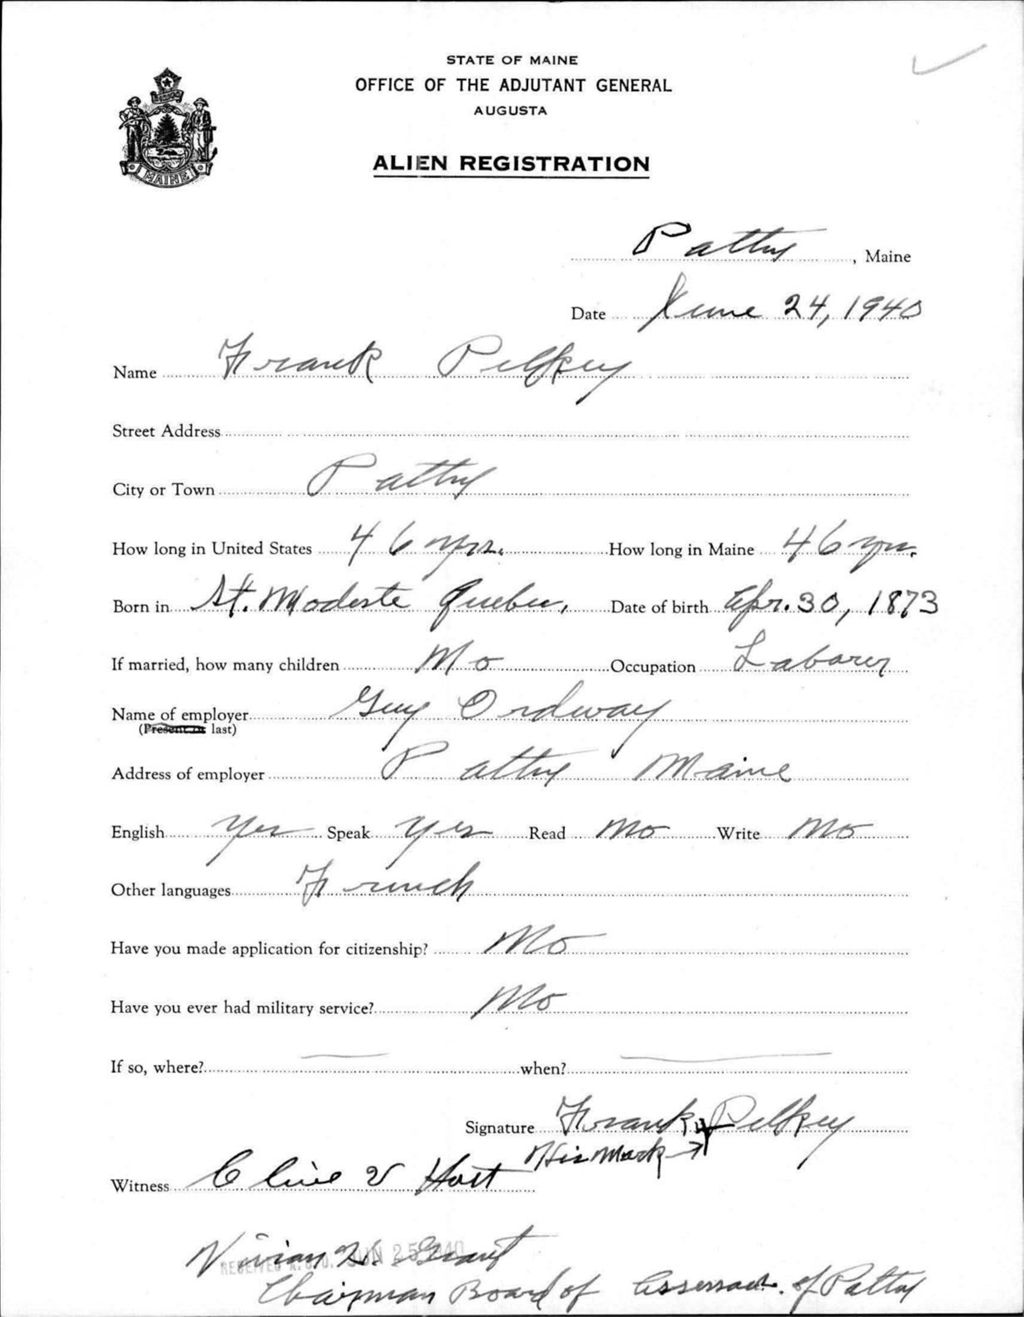 STATE OF MAINE
OFFICE OF THE ADJUTANT GENERAL
AUGUSTA
MAINE
ALIEN REGISTRATION
Patten, Maine
Date June 24, 1940
Name Frank Pelkey
Street Address
City or Town Patten
How long in United States 46 yrs. How long in Maine 46 yrs.
Born in St. Modeste Quebec, Date of birth Apr. 30, 1873
If married, how many children No Occupation Laborer
Name of employer Guy Ordway
(Present or last)
Address of employer Patten Maine
English Yes Speak Yes Read No Write No
Other languages French
Have you made application for citizenship? No
Have you ever had military service? No
If so, where? when?
Signature Frank x Pelkey
His Mark
Witness Clive V
Vivian Grant
RECEIVED A.G.O. JUN 25 1940
Chairman Board of Assessors of Patten